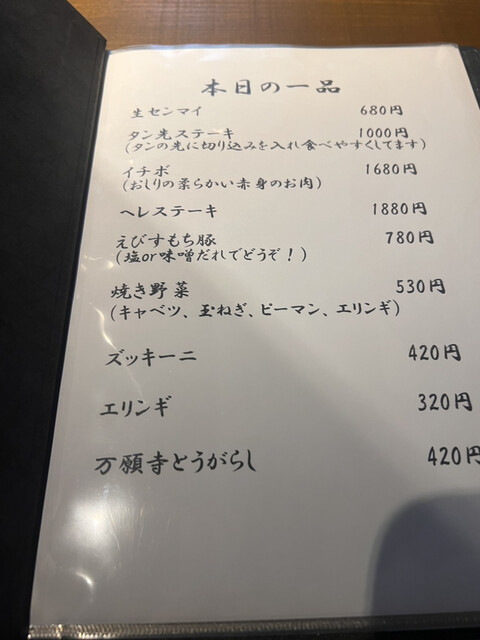 本日の一品
生センマイ 680円
タン先ステーキ 1000円
(タンの先に切り込みを入れ食べやすくしてます)
イチボ 1680円
(おしりの柔らかい赤身のお肉)
ヘレステーキ 1880円
えびすもち豚 780円
(塩or味噌だれでどうぞ！)
焼き野菜 530円
(キャベツ、玉ねぎ、ピーマン、エリンギ)
ズッキーニ 420円
エリンギ 320円
万願寺とうがらし 420円